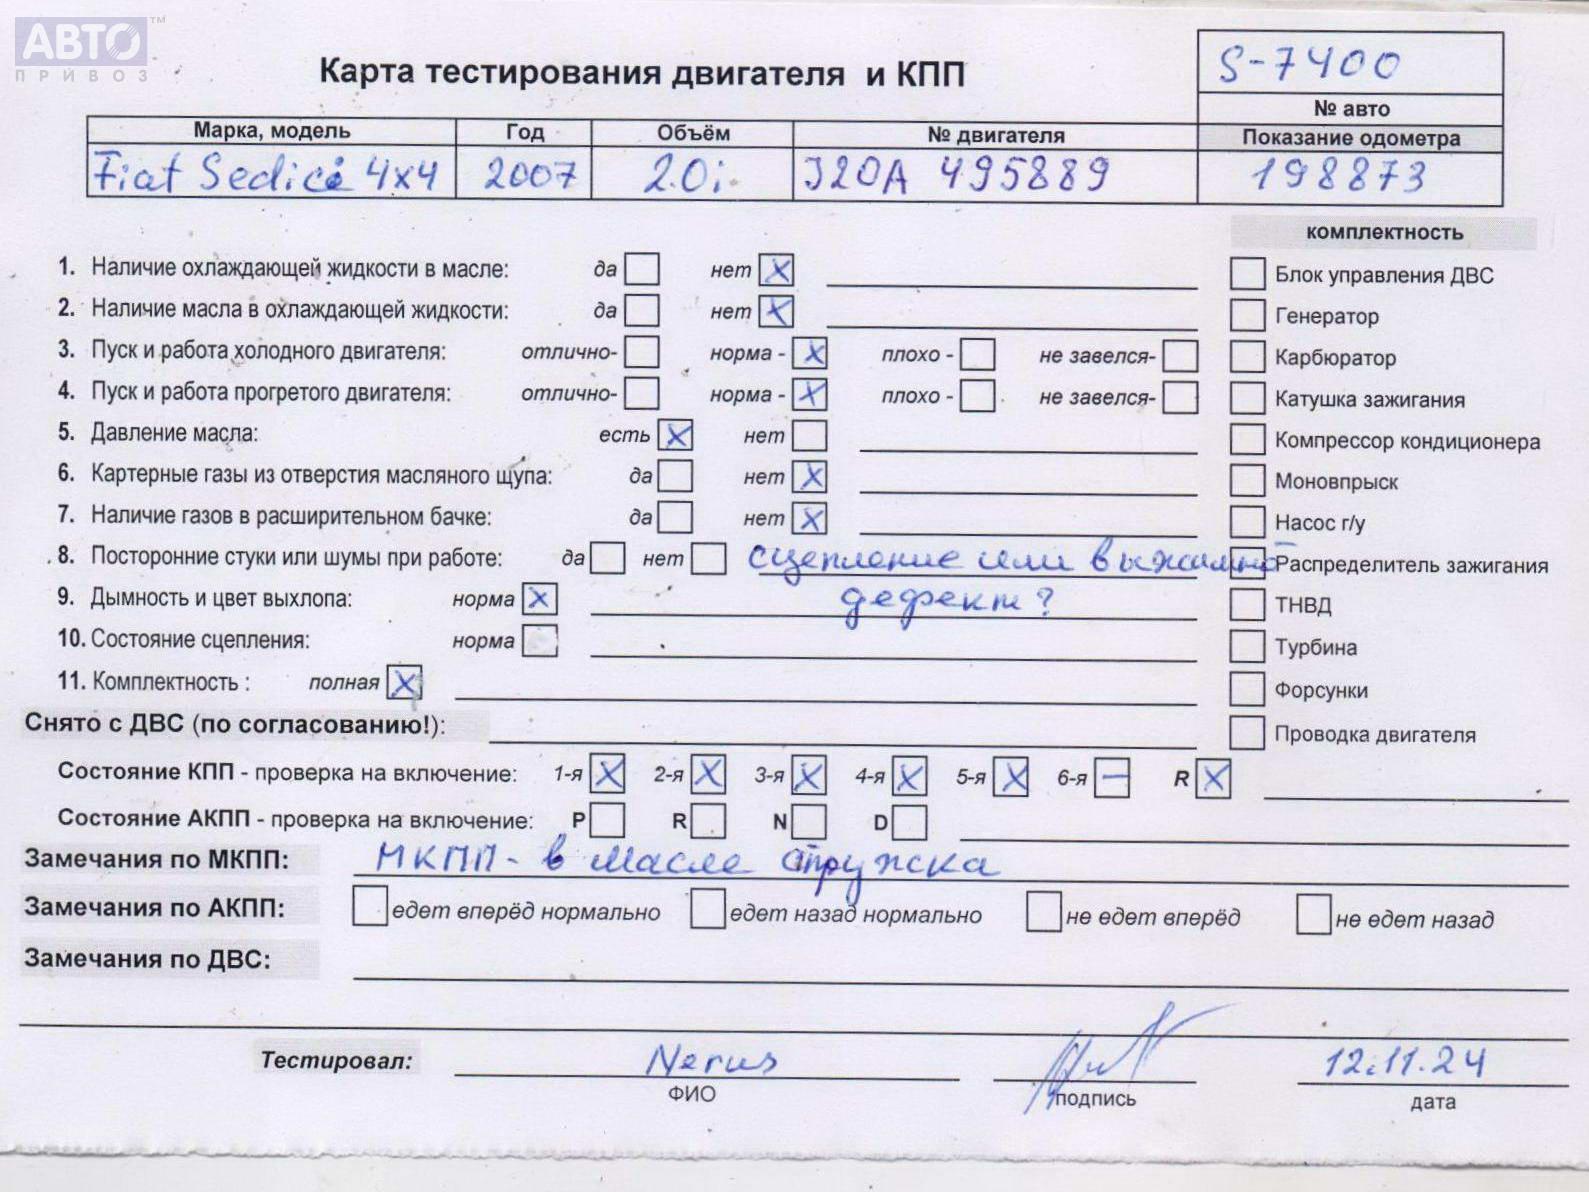 АВТО ™
ПРИВОЗ
S-7400
Карта тестирования двигателя и КПП
№ авто
Марка, модель Год Объём № двигателя Показание одометра
Fiat Sedici 4x4 2007 2.0i J20A 495889 198873
комплектность
1. Наличие охлаждающей жидкости в масле: да нет X
Блок управления ДВС
2. Наличие масла в охлаждающей жидкости: да нет X
Генератор
3. Пуск и работа холодного двигателя: отлично- норма - X плохо - не завелся-
Карбюратор
4. Пуск и работа прогретого двигателя: отлично- норма - X плохо - не завелся-
Катушка зажигания
5. Давление масла: есть X нет
Компрессор кондиционера
6. Картерные газы из отверстия масляного щупа: да нет X
Моновпрыск
7. Наличие газов в расширительном бачке: да нет X
Насос г/у
8. Посторонние стуки или шумы при работе: да нет сцепление или выжимной
Распределитель зажигания
9. Дымность и цвет выхлопа: норма X дефект?
ТНВД
10. Состояние сцепления: норма
Турбина
11. Комплектность : полная X
Форсунки
Снято с ДВС (по согласованию!):
Проводка двигателя
Состояние КПП - проверка на включение: 1-я X 2-я X 3-я X 4-я X 5-я X 6-я — R X
Состояние АКПП - проверка на включение: P R N D
Замечания по МКПП: МКПП - в масле стружка
Замечания по АКПП: едет вперёд нормально едет назад нормально не едет вперёд не едет назад
Замечания по ДВС:
Тестировал: Nerus 12.11.24
ФИО подпись дата